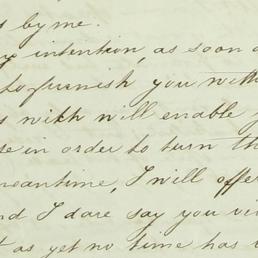 by me.
intention, as soon
to furnish you with
with will enable
in order to turn
meantime, I will offer
I dare say you
as yet no time has